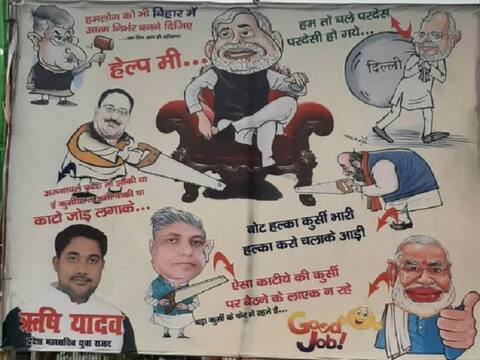 हमलोग को भी बिहार में
आत्म निर्भर बनने दिजिए
हेल्प मी...
हम तो चले परदेस
परदेसी हो गये...
दिल्ली
अरूणाचल प्रदेश तो झाँकी था
काटो जोड़ लगाके...
बोट हल्का कुर्सी भारी
हल्का करो चलाके आड़ी
ऐसा काटीये की कुर्सी
पर बैठने के लाएक न रहे
बड़ा कुर्सी के फेर में रहते है...
Good Job!
ऋषि यादव
प्रदेश महासचिव युवा राजद